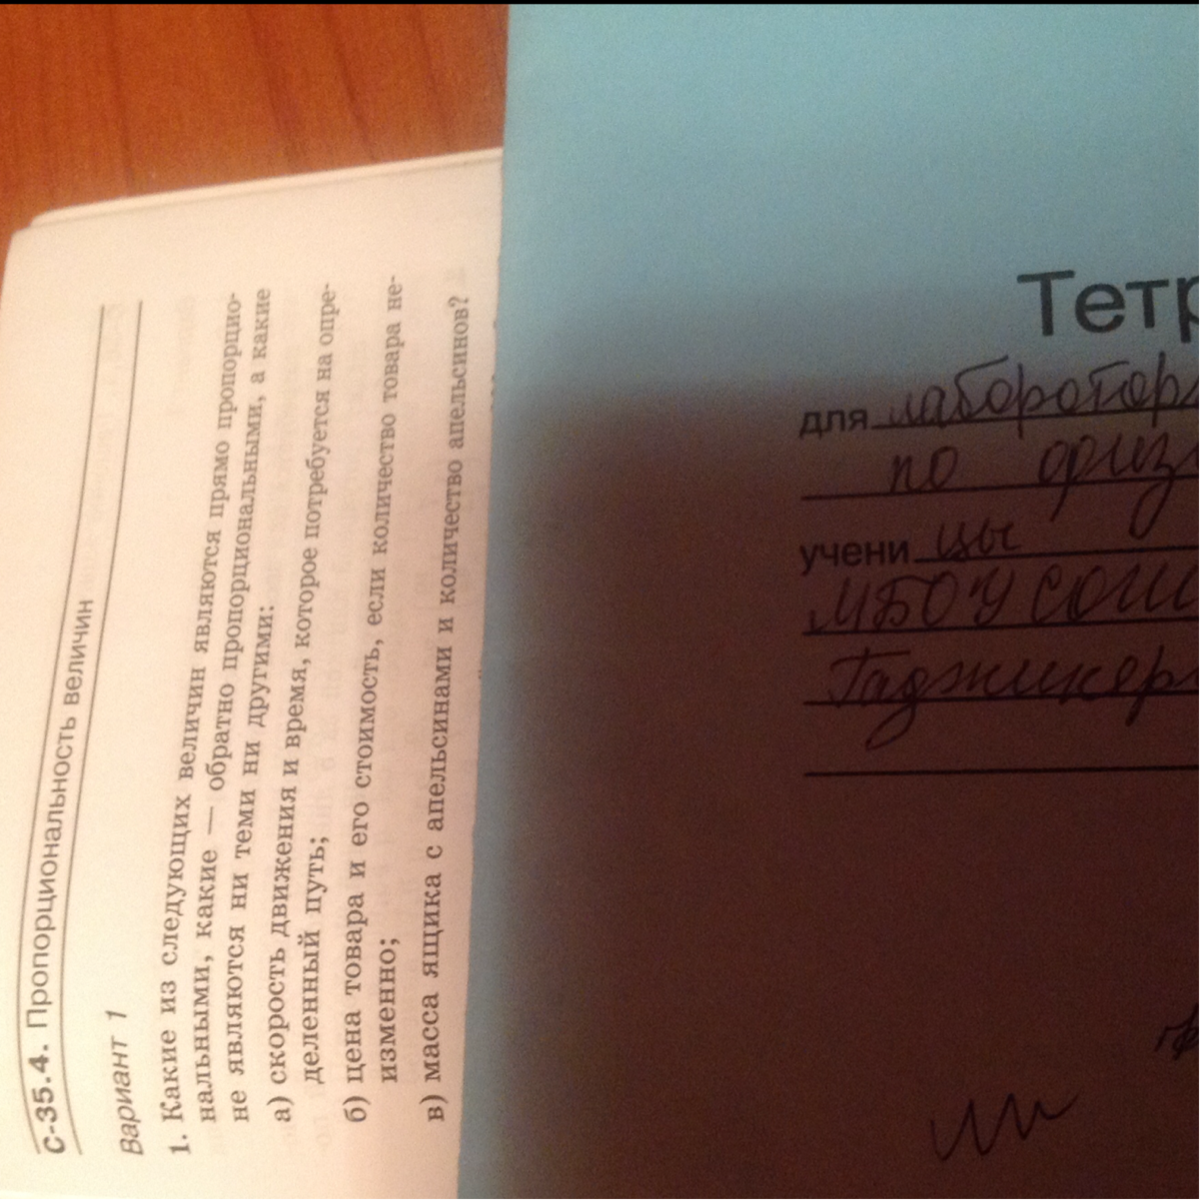 С-35.4. Пропорциональность величин
Вариант 1
1. Какие из следующих величин являются прямо пропорцио-
нальными, какие — обратно пропорциональными, а какие
не являются ни теми ни другими:
а) скорость движения и время, которое потребуется на опре-
деленный путь;
б) цена товара и его стоимость, если количество товара не-
изменно;
в) масса ящика с апельсинами и количество апельсинов?
Тетр
для лаборотор
по физ
учени цы
МБОУ СОШ
Гаджикер